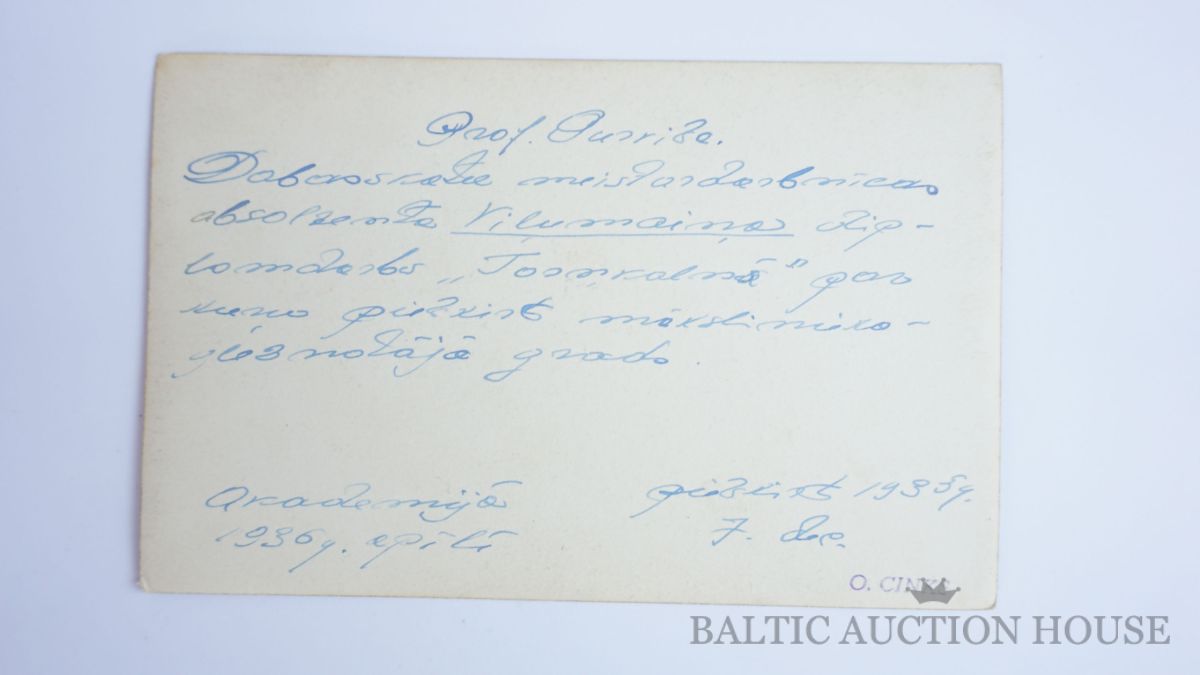 Prof. Purviša.
Dabasskata meistardarbnīcas
absolventa Viļumaiņa dip-
lomdarbs „Torņkalnā" par
kuru piešķirt mākslinieka-
gleznotāja grads.
Akademijā
1936g. aprīlī
piešķirt 1935g.
7. dec.
O. CINKS
BALTIC AUCTION HOUSE